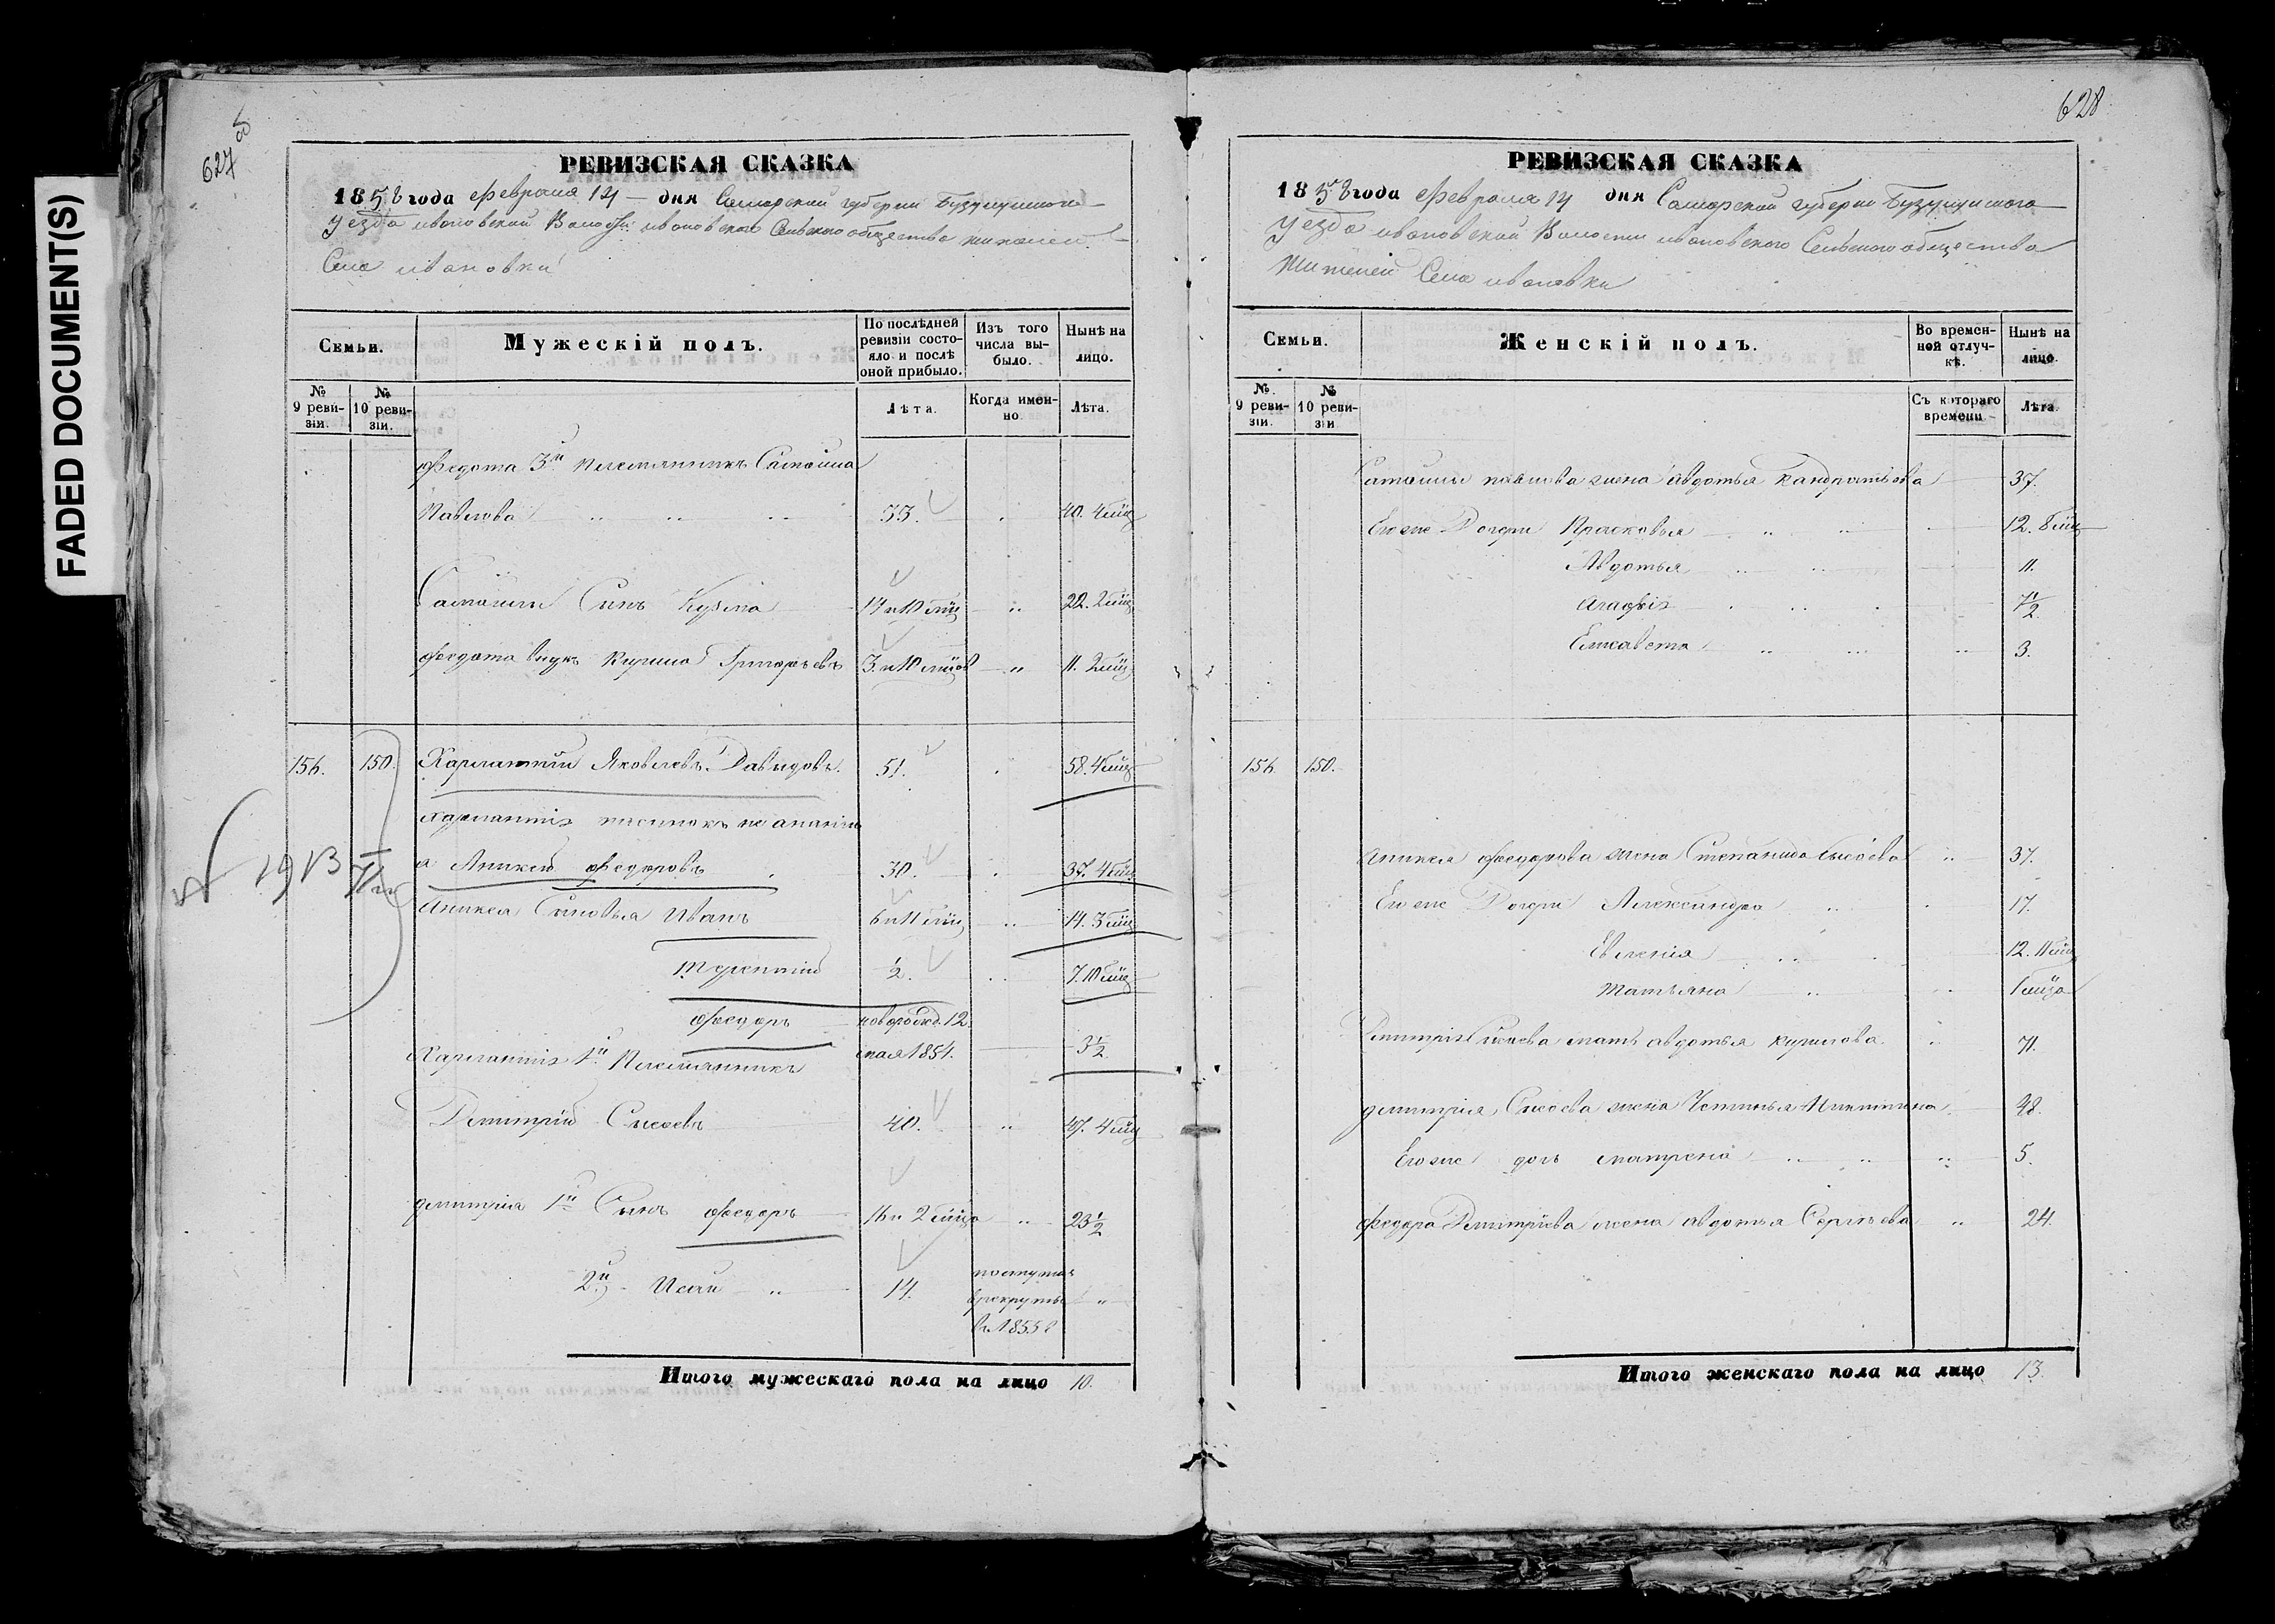 FADED DOCUMENT(S)
627 об
РЕВИЗСКАЯ СКАЗКА
1858 года февраля 14 дня Самарской губернии Бузулукскаго
Уезда ивановской Волости ивановскаго Сельскаго общества жителей
Села ивановки
Семьи.
Мужескій полъ.
По послѣдней ревизіи состояло и послѣ оной прибыло.
Изъ того числа выбыло.
Нынѣ на лицо.
№ 9 ревизіи.
№ 10 ревизіи.
Лѣта.
Когда именно
Лѣта.
федота 3й племянникъ Самойла
Павлова 33. 40. 4мц
Самойлы Сынъ Кузма 14 и 10 мц 22. 2мц
федота внукъ Кирила Григорьевъ 3. и 10 мцов 11. 2мц
156. 150. Харлампий Яковлевъ Давыдовъ. 51. 58. 4мц
Харлампія пасынокъ
а Аникей федоровъ 30. 37. 4мц
Аникея Сыновья Иванъ 6 и 11 мц 14. 3мц
терентий ½. 7. 10мц
федоръ новорожд. 12
Харлампія 1й Племянникъ мая 1854. 3½
Дмитрій Сысоевъ 40. 47. 4мц
дмитрия 1й Сынъ федоръ 16 и 2 мца 23½
2й Исай 14. поступил
в рекруты
в 1855 г
Итого мужескаго пола на лицо 10.
628
РЕВИЗСКАЯ СКАЗКА
1858 года февраля 14 дня Самарской губернии Бузулукскаго
Уезда ивановской Волости ивановского Сельскаго общества
Жителей Села ивановки
Семьи.
Женскій полъ.
Во временной отлучкѣ.
Нынѣ на лицо.
№ 9 ревизіи.
№ 10 ревизіи
Съ котораго времени
Лѣта.
Самойлы павлова жена авдотья Кандратьева 37.
Его же Дочери Прасковья 12. 8мц
Авдотья 11.
Агафия 7½
Елисавета 3.
156. 150.
Аникея федорова жена Степанида Сысоева 37.
Его же Дочери Александра 17.
Евгения 12. 11мц
Татьяна 1мца
Дмитрия Сысоева мать авдотья кирилова. 71.
дмитрия Сысоева жена Устинья Никитина 48.
Его же дочь матрена 5.
федора Дмитриева жена авдотья Сергеева 24.
Итого женскаго пола на лицо 13.